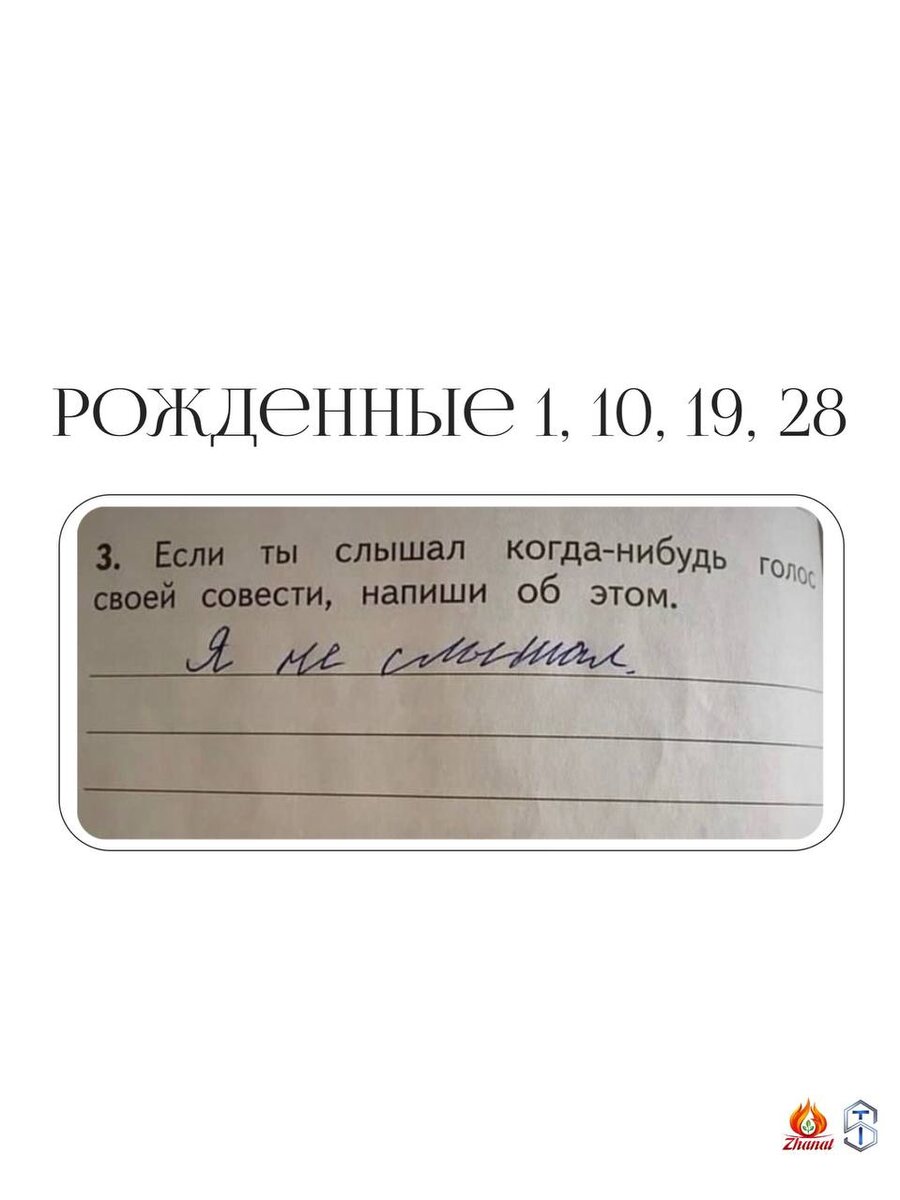 РОЖДЕННЫЕ 1, 10, 19, 28
3. Если ты слышал когда-нибудь голос
своей совести, напиши об этом.
Я не слышал.
Zhanat
TS